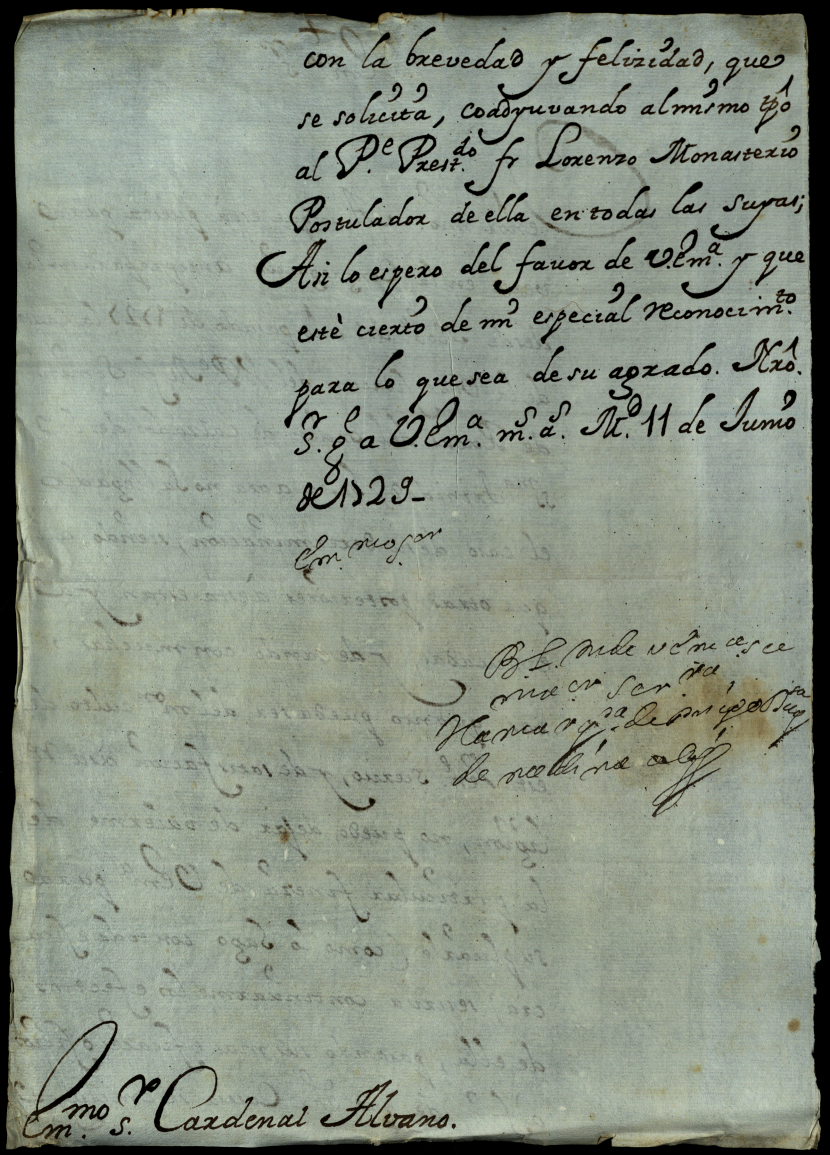 con la brevedad y felizidad, que
se solicita, coadyuvando al mismo tpõ
al P.e Prest.do fr Lorenzo Monasterio
Postulador de ella en todas las suyas;
Asi lo espero del favor de V.Em.a y que
estè cierto de mi especial reconocim.to
para lo que sea de su agrado. Nrõ.
S.r g.e a V.Em.a m.s a.s M.d 11 de Junio
de 1729-
Em.mo S.or
BL. m de v em.a
su maior ser.ra
La marq.sa de
de
Em.mo S.r Cardenal Alvano.